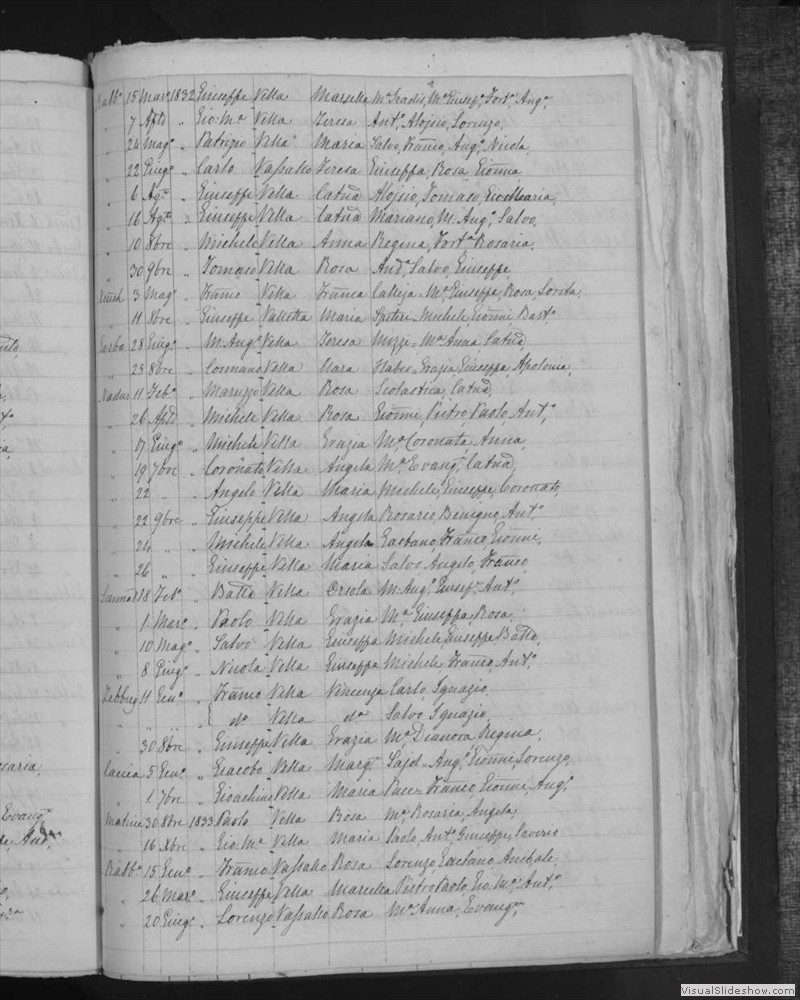 Rabb:o 15 Mar:o 1832 Giuseppe Vella Marsella M:a Gradis, M:a Giusep:a Fort:o Ang:o
" 7 Aple " Gio: M:a Vella Teresa Ant:o Aloisio, Lorenzo,
" 24 Mag:o " Patrizio Vella Maria Salvo, Franco, Ang:o Nicola,
" 22 Giug:o " Carlo Vassallo Teresa Giuseppa, Rosa Gionna
" 6 Ag:o " Giuseppe Vella Catna Aloisio, Tomaso, Gio: Maria,
" 16 Ag:o " Giuseppe Vella Catna Mariano, M: Ang:o Salvo,
" 10 8bre " Michele Vella Anna Regina, Fort:a Rosaria,
" 30 9bre " Tomaso Vella Rosa And:a Salvo, Giuseppe,
3 Mag:o " Franco Vella Franca Calleja M:a Giuseppa, Rosa, Loreta,
" 11 Xbre " Giuseppe Valletta Maria Spiteri Michele, Gionni Batt:a
Garbo 28 Giug:o " M: Ang:o Vella Teresa M:a Anna, Catna,
" 23 8bre " Cosmano Vella Clara Grazia, Giuseppa Apolonia,
Nadur 11 Feb:o " Vella Rosa Scolastica, Catna,
" 26 Aple " Michele Vella Rosa Gionni, Pietro Paolo, Ant:o
" 17 Giug:o " Michele Vella Grazia M:a Coronata, Anna,
" 19 7bre " Coronato Vella Angela M:a Evang:a, Catna,
" 22 " " Angelo Vella Maria Michele, Giuseppe, Coronato,
" 22 9bre " Giuseppe Vella Angela Rosario, Benigno, Ant:o
" 24 " " Michele Vella Angela Gaetano, Franco, Gionni,
" 26 " " Giuseppe Vella Maria Salvo Angelo, Franco,
Sannat 18 Feb:o " Batta Vella Orsola M: Ang:o Giusep:e Ant:o
" 1 Mar:o " Paolo Vella Grazia M:a Giuseppa, Rosa,
" 10 Mag:o " Salvo Vella Giuseppa Michele, Giuseppe Batta,
" 8 Giug:o " Nicola Vella Giuseppa Michele, Franco, Ant:o
Zebbug 11 Gen:o " Franco Vella Vincenza Carlo, Ignazio,
" " " d:o Vella d:a Salvo, Ignazio,
" 30 8bre " Giuseppe Vella Grazia M:a Dianora, Regina,
Cacia 5 Gen:o " Giacobo Vella Marg:a Sajd Ang:o, Gionni, Lorenzo,
" 1 7bre " Gioachino Vella Maria Pace Franco, Gionni, Ang:o
Matrice 30 8bre 1833 Paolo Vella Rosa M:a Rosaria, Angela,
" 16 Xbre " Gio: M:a Vella Maria Paolo, Ant:o Giuseppe, Saverio
Rabb:o 15 Gen:o " Franco Vassallo Rosa Lorenzo, Gaetano, Anibale,
" 26 Mar:o " Giuseppe Vella Marsella Pietro Paolo, Gio: M:a Ant:o
" 20 Giug:o " Lorenzo Vassallo Rosa M:a Anna, Evang:a
osaria,
Evang:a
And:a
VisualSlideshow.com